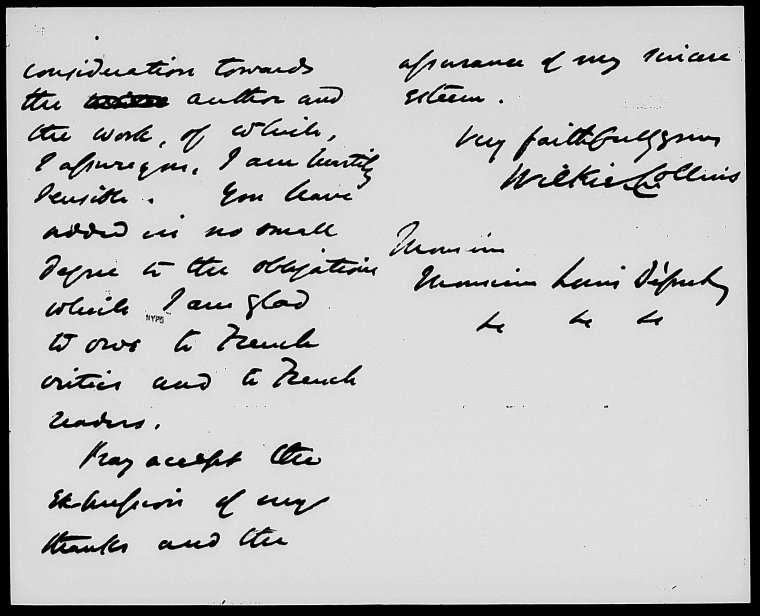 consideration towards
the author and
the work, of which,
I assure you, I am heartily
sensible. You have
added in no small
degree to the obligations
which I am glad
to owe to French
critics and to French
readers.
Pray accept the
expression of my
thanks and the
assurance of my sincere
esteem.
Very faithfully yours
Wilkie Collins
Monsieur
Monsieur Louis Dépret
&c &c &c
NYPS